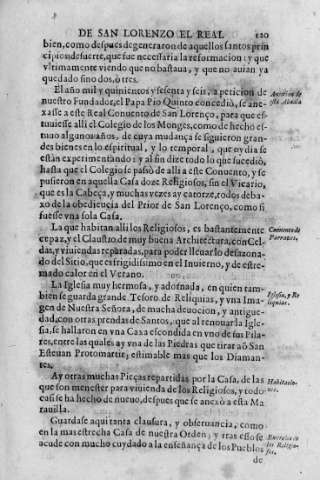 DE SAN LORENZO EL REAL 120
bien, como despues degeneraron de aquellos santos prin
cipios de suerte, que fue necessaria la reformacion: y que
vltimamente viendo que no bastaua, y que no auian ya
quedado sino dos, ò tres.
El año mil y quinientos y sesenta y seis, a peticion de
nuestro Fundador, el Papa Pio Quinto concediò, se ane-
xasse a este Real Conuento de San Lorenço, para que es-
tuuiesse alli el Colegio de los Monges, como de hecho es-
tuuo algunos años, de cuya mudança se siguieron gran-
des bienes en lo espiritual, y lo temporal, que oy dia se
están experimentando: y al fin dize todo lo que sucediò,
hasta que el Colegio se passò de alli a este Conuento, y se
pusieron en aquella Casa doze Religiosos, sin el Vicario,
que es la Cabeça, y muchas vezes ay catorze, todos deba-
xo de la obediencia del Prior de San Lorenço, como si
fuesse vna sola Casa.
Anexion de
esta Abadia
La que habitan alli los Religiosos, es bastantemente
capaz, y el Claustro de muy buena Architectura, con Cel-
das, y viuiendas reparadas, para poder lleuar lo desazona-
do del Sitio, que es frigidissimo en el Inuierno, y de estre-
mado calor en el Verano.
Conuento de
Parrazes,
La Iglesia muy hermosa, y adornada, en quien tam-
bien se guarda grande Tesoro de Reliquias, y vna Ima-
gen de Nuestra Señora, de mucha deuocion, y antigue-
dad, con otras prendas de Santos, que al renouar la Igle-
sia, se hallaron en vna Caxa escondida en vno de sus Pila-
res, entre las quales ay vna de las Piedras que tiraron a San
Esteuan Protomartir, estimable mas que los Diaman-
tes.
Iglesia, y Re
liquias.
Ay otras muchas Pieças repartidas por la Casa, de las
que son menester para viuienda de los Religiosos, y todo
casi se ha hecho de nueuo, despues que se anexò a esta Ma
rauilla.
Habitacio-
nes.
Guardase aqui tanta clausura, y obseruancia, como
en la mas estrecha Casa de nuestra Orden; y tras esso se
acude con mucho cuydado a la enseñança de los Pueblos
los Religio-
sos,
de